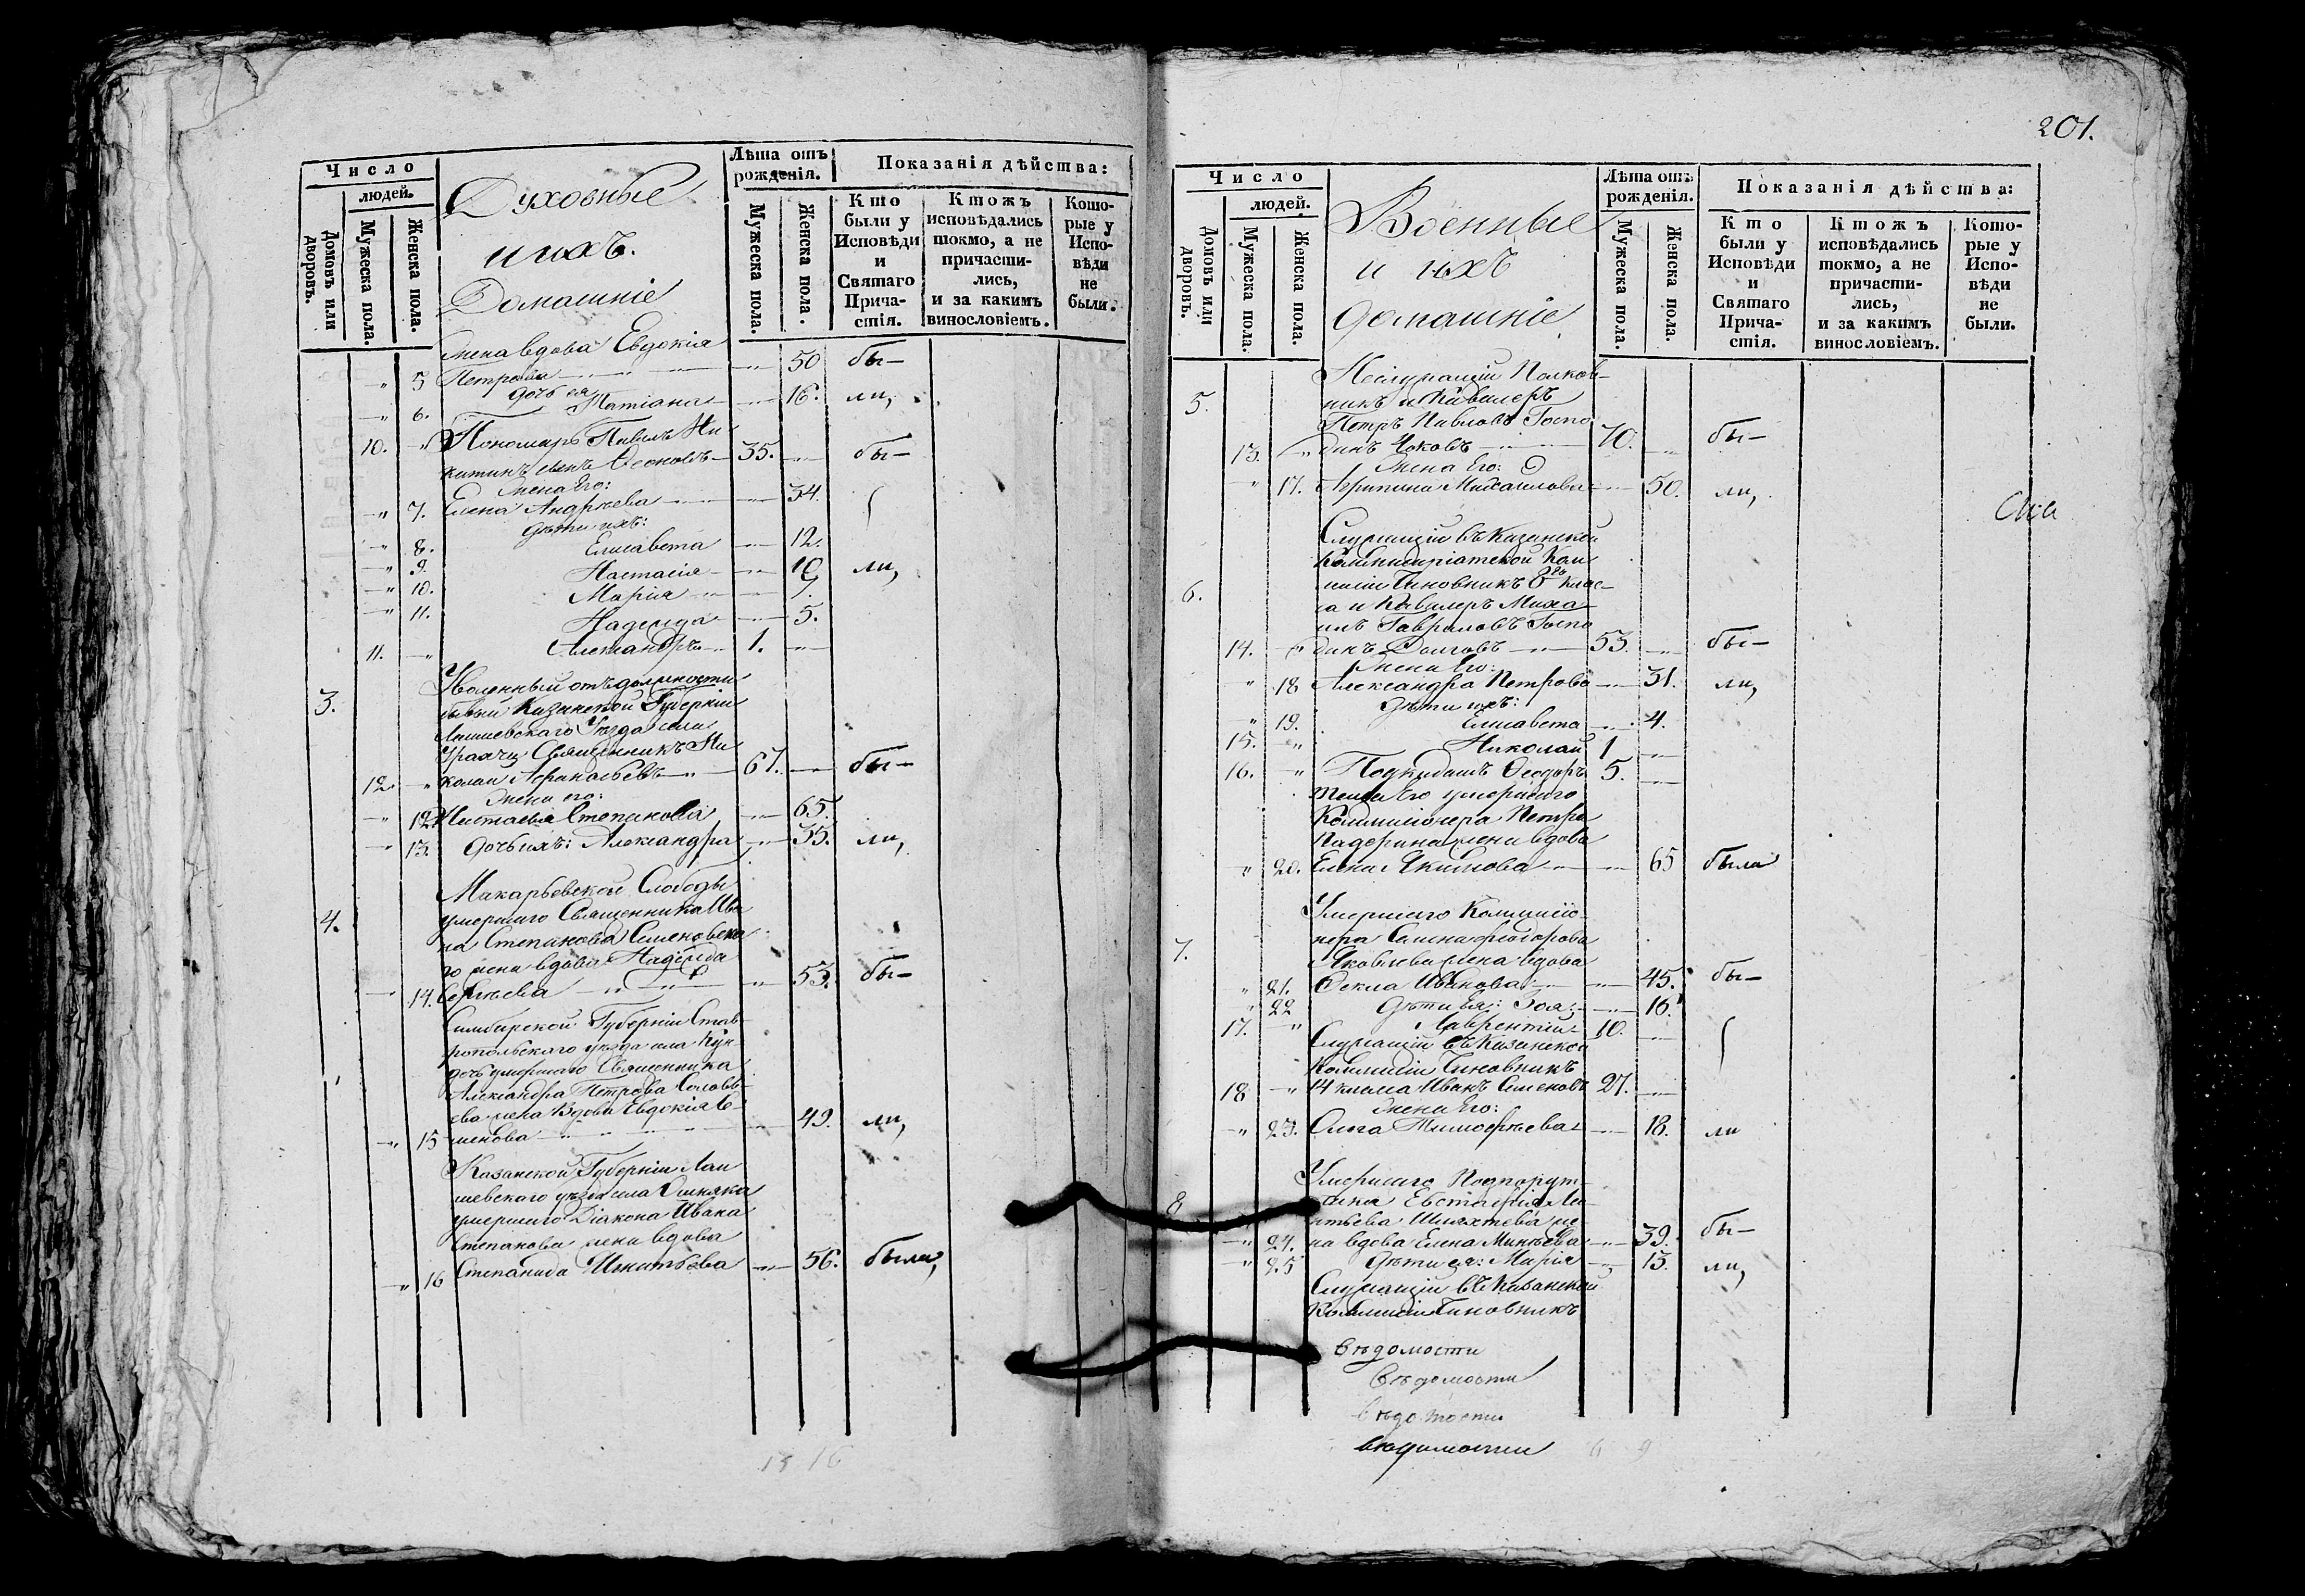 Число
людей.
Домовъ или дворовъ.
Мужеска пола.
Женска пола.
Духовные
и ихъ.
Домашніе
Лѣта отъ рожденія.
Мужеска пола.
Женска пола.
Показанія дѣйства:
Кто были у Исповѣди и Святаго Прича- стія.
Ктожъ исповѣдались токмо, а не причасти- лись, и за какимъ винословіемъ.
Кото- рые у Испо- вѣди не были.
жена вдова Евдокія
5 Петрова 50 бы-
дочь ея
6. Татіана 16. ли,
Пономарь Павелъ Ни
10. китинъ сынъ 35. бы-
жена Его:
7. Елена Андрѣева 34.
дѣти ихъ:
8. Елисавета 12.
9. Настасія 10 ли,
10. Марія 7.
11. Надежда 5.
11. Александръ 1.
3. Уволенный отъ должности
бывый Казанской Губерніи
Лаишевскаго Уѣзда села
Священникъ Ни
12. колай Афанасьевъ 67. бы-
жена его:
12 Настасья Степанова 65.
13. дочь ихъ: Александра 35. ли,
Макарьевской Слободы
4. умершаго Священника Ива
на Степанова Семеновска
го жена вдова Надежда
14. Сергѣева 53. бы-
Симбирской Губерніи Став-
ропольскаго уѣзда села
умершаго Священника
Александра Петрова Соловь-
ева жена вдова Евдокія Се-
15 менова 49. ли,
Казанской Губерніи Лаи
шевскаго уѣзда села
умершаго Діакона Ивана
Степанова жена вдова
16 Степанида Игнатьева 56. была,
13 16
201.
Число
людей.
Домовъ или дворовъ.
Мужеска пола.
Женска пола.
Военные
и ихъ
домашніе
Лѣта отъ рожденія.
Мужеска пола.
Женска пола.
Показанія дѣйства:
Кто были у Исповѣди и Святаго Прича- стія.
Ктожъ исповѣдались токмо, а не причасти- лись, и за какимъ винословіемъ.
Кото- рые у Испо- вѣди не были.
Неслужащій Полков-
5. никъ и Кавалеръ
Петръ Павловъ Госпо
13. динъ Чоковъ 70. бы-
жена Его:
17. Агрипина Михаилова 50. ли,
Служащій въ Казанской
Коммисаріатской Ком
мисіи Чиновникъ 8го клас-
6. са и Кавалеръ Миха
илъ Гавриловъ Госпо
14. динъ Долговъ 53. бы-
жена Его:
18 Александра Петрова 31. ли,
дѣти ихъ:
19. Елисавета 4.
15. Николай 1
16. Подкидышъ Ѳеодоръ 5.
теща Его умершаго
Коммисіонера Петра
жена вдова
20. Елена Якимова 65 была
Умершаго Коммисіо-
нера Семена Ѳеодорова
7. Яковлева жена вдова
21. Ѳекла Иванова 45. бы-
22 дѣти ея: Зоя 16.
17. Лаврентій 10.
Служащій въ Казанской
Коммисіи Чиновникъ
18 14 класса Иванъ Семеновъ 27.
жена Его:
23. Ольга Тимофѣева 18. ли
Умершаго Подпорут-
8 чика Евстафія
же-
24. на вдова Елена Минѣева 39. бы-
25 дѣти ея: Марія 13. ли,
Служащій въ Казанской
Коммисіи Чиновникъ
вѣдомости
вѣдомости
вѣдомости
вѣдомости
6 9